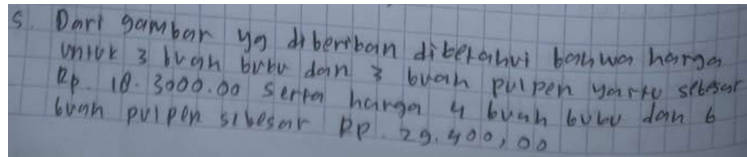 5. Dari gambar yg diberikan diketahui bahwa harga
untuk 3 buah buku dan 3 buah pulpen yaitu sebesar
Rp. 18.3000.00 serta harga 4 buah buku dan 6
buah pulpen sebesar Rp. 29.400,00